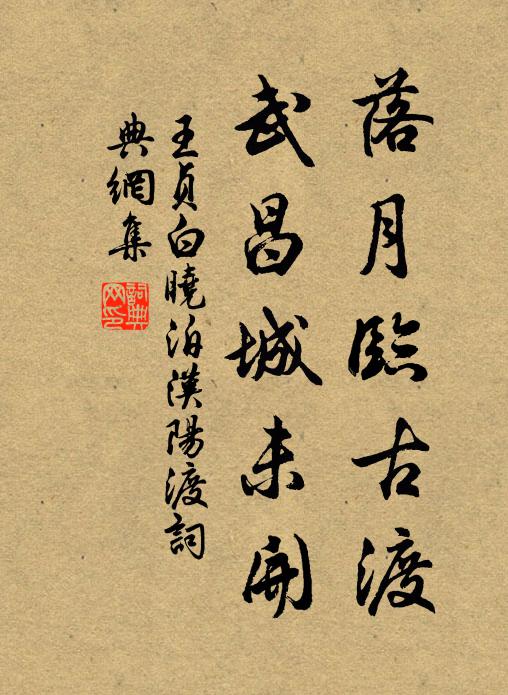 落月臨古渡
武昌城未開
王貞白曉泊漢陽渡詞
典網集
詞典
网印